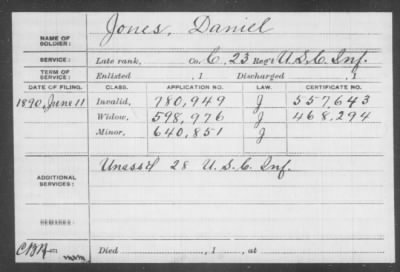 Jones, Daniel
NAME OF SOLDIER:
SERVICE: Late rank, Co. C, 23 Reg't U.S.C. Inf.
TERM OF SERVICE: Enlisted , 1 Discharged , 1
DATE OF FILING. CLASS. APPLICATION NO. LAW. CERTIFICATE NO.
1890, June 11 Invalid, 780,949 J 557,643
Widow, 598,976 J 468,294
Minor, 640,851 J
ADDITIONAL SERVICES: Unass'd 28 U.S.C. Inf.
REMARKS:
Died , 1 , at